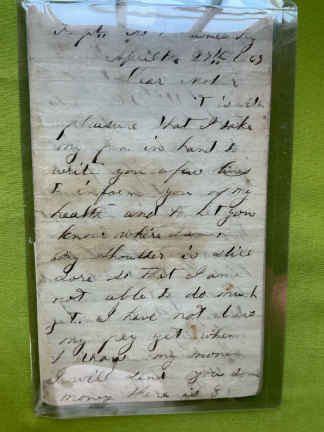 April 27th 63
Dear Moth
it is with
pleasure that I take
my pen in hand to
write you a few lines
to inform you of my
health and to let you
know where I am
my shoulder is still
sore so that I am
not able to do much
yet. I have not drew
my pay yet when
I draw my money
I will send you some
money there is